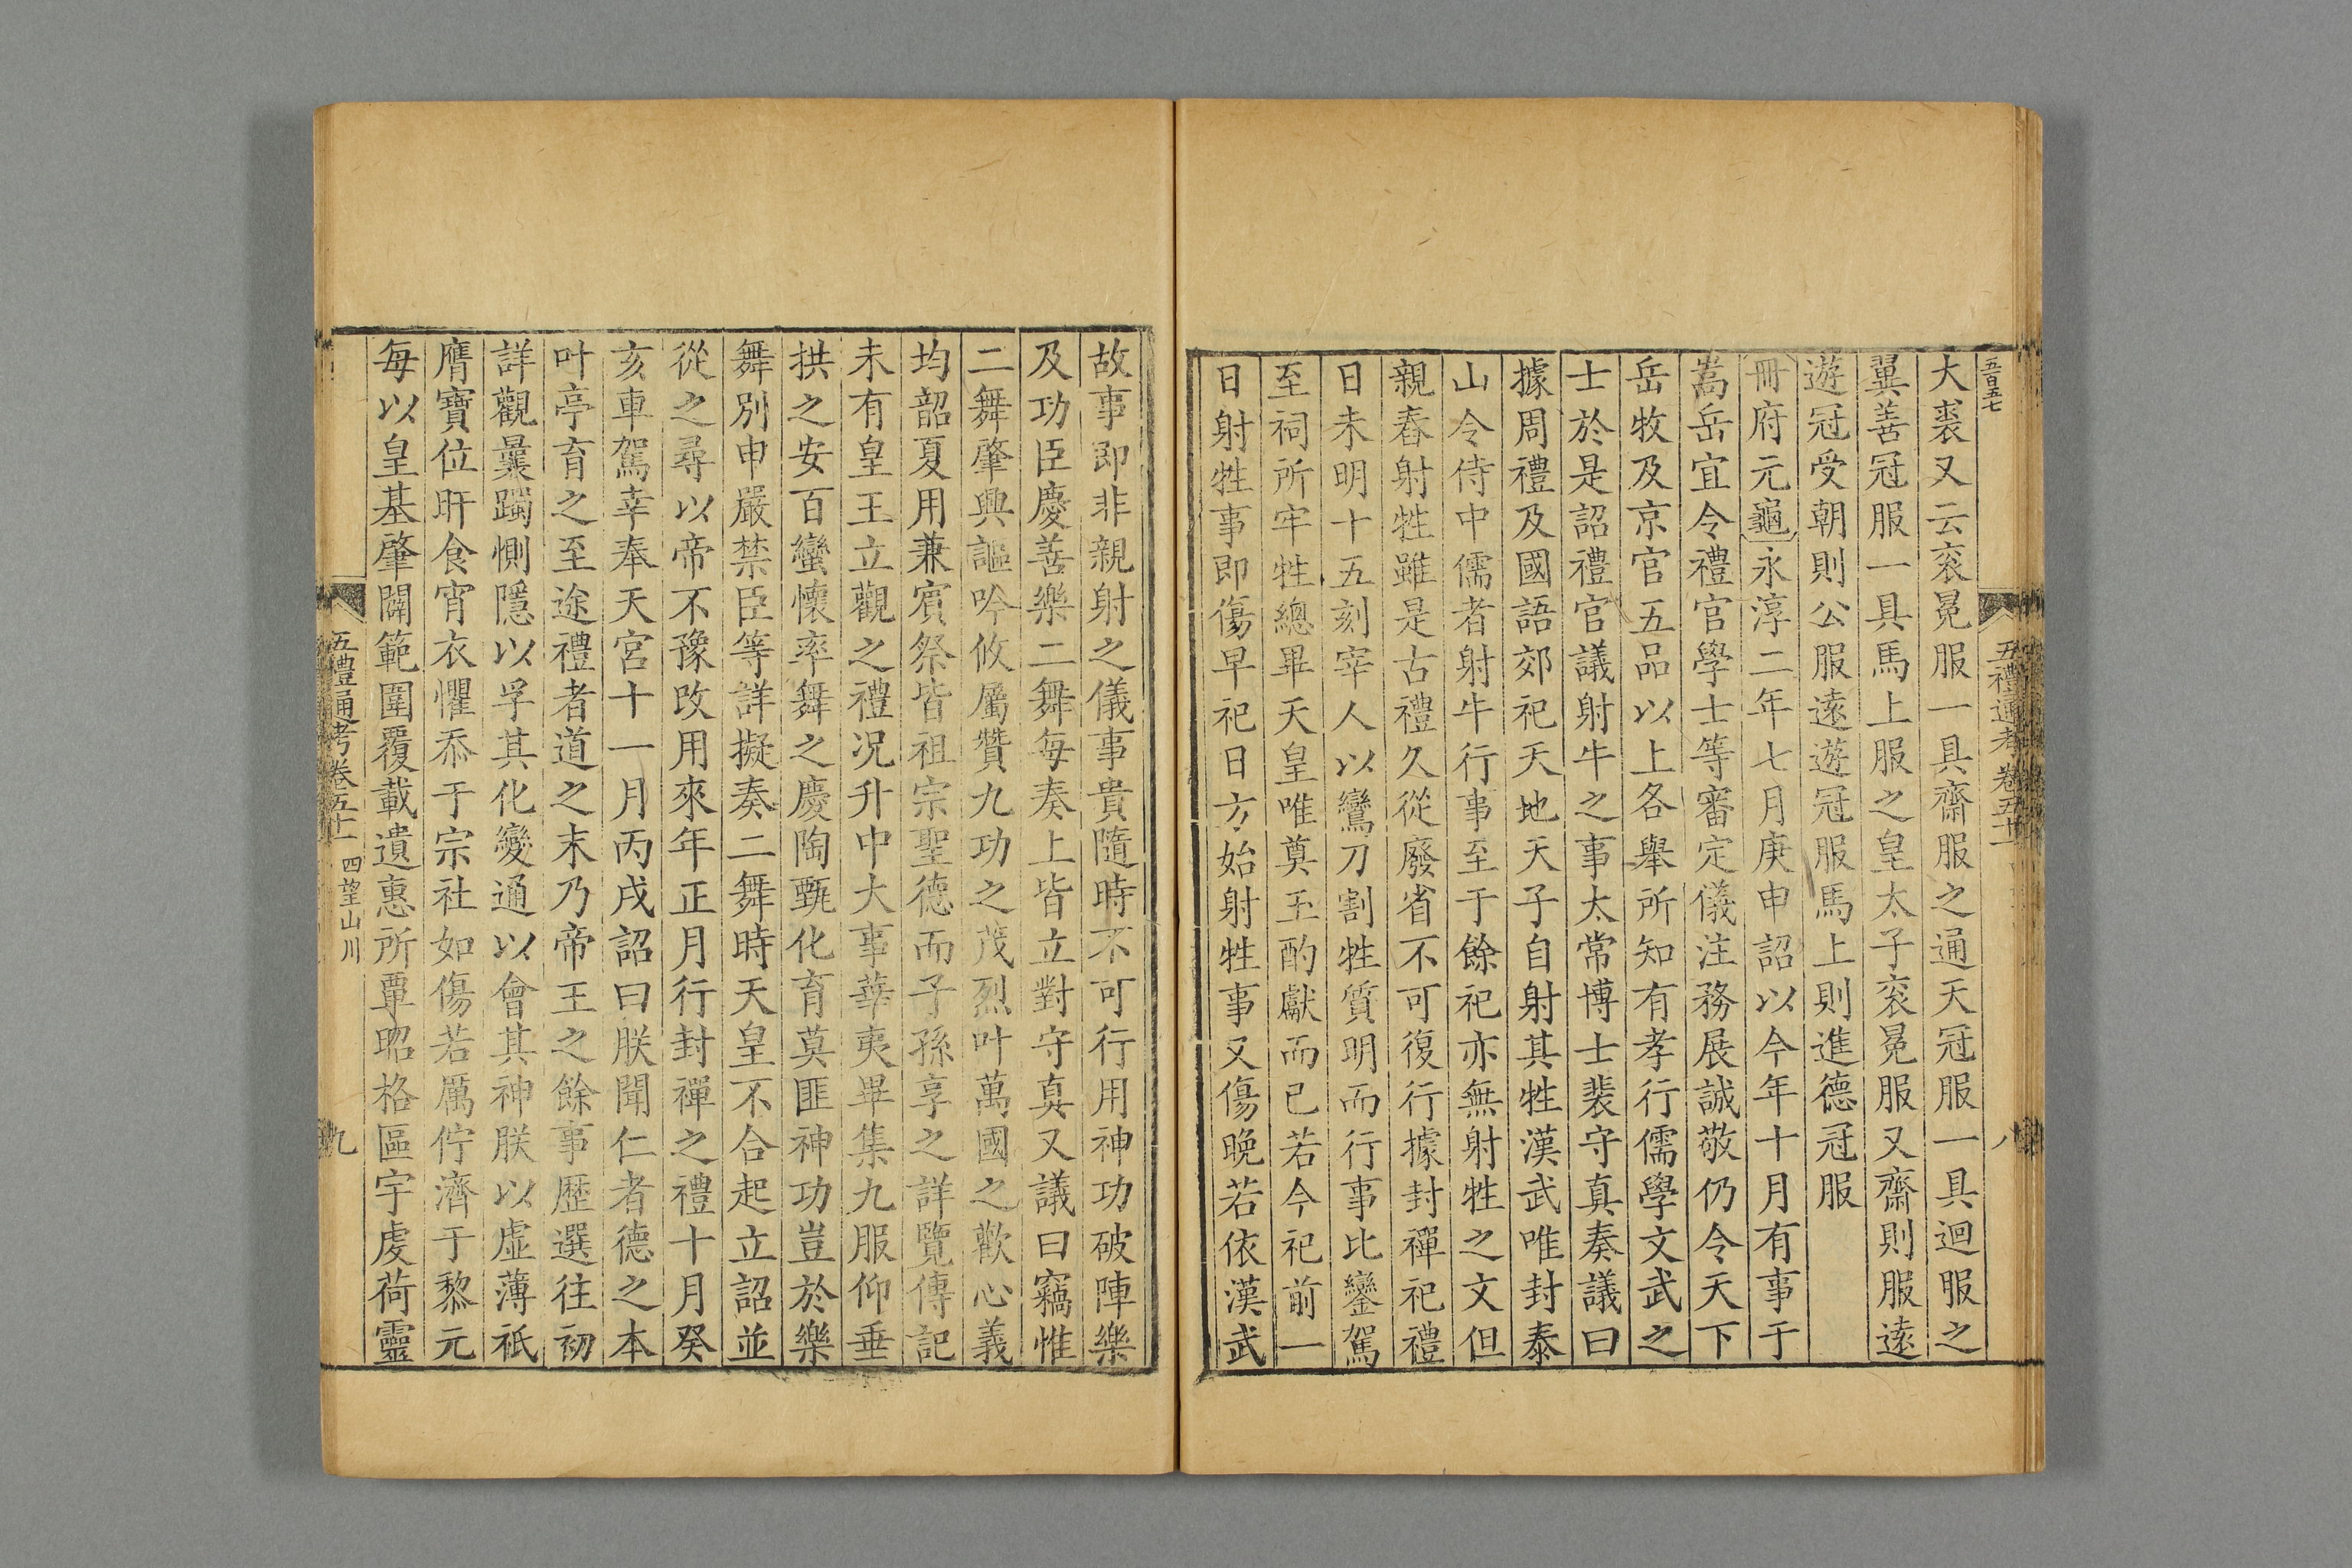 五百五七
五禮通考卷五十一
八
大裘又云衮冕服一具齋服之通天冠服一具迴服之
翼善冠服一具馬上服之皇太子衮冕服又齋則服遠
遊冠受朝則公服遠遊冠服馬上則進德冠服
冊府元龜永淳二年七月庚申詔以今年十月有事于
嵩岳宜令禮官學士等審定儀注務展誠敬仍令天下
岳牧及京官五品以上各舉所知有孝行儒學文武之
士於是詔禮官議射牛之事太常博士裴守真奏議曰
據周禮及國語郊祀天地天子自射其牲漢武唯封泰
山令侍中儒者射牛行事至于餘祀亦無射牲之文但
親舂射牲雖是古禮久從廢省不可復行據封禪祀禮
日未明十五刻宰人以鸞刀割牲質明而行事比鑾駕
至祠所牢牲總畢天皇唯奠玉酌獻而已若今祀前一
日射牲事即傷早祀日方始射牲事又傷晚若依漢武
故事即非親射之儀事貴隨時不可行用神功破陣樂
及功臣慶善樂二舞每奏上皆立對守真又議曰竊惟
二舞肇興謳吟攸屬贊九功之茂烈叶萬國之歡心義
均韶夏用兼賓祭皆祖宗聖德而子孫享之詳覽傳記
未有皇王立觀之禮况升中大事華夷畢集九服仰垂
拱之安百蠻懷率舞之慶陶甄化育莫匪神功豈於樂
舞別申嚴禁臣等詳擬奏二舞時天皇不合起立詔並
從之尋以帝不豫改用來年正月行封禪之禮十月癸
亥車駕幸奉天宮十一月丙戌詔曰朕聞仁者德之本
叶亭育之至途禮者道之末乃帝王之餘事歷選往初
詳觀曩躅惻隱以孚其化變通以會其神朕以虛薄祇
膺寶位旰食宵衣懼忝于宗社如傷若厲佇濟于黎元
每以皇基肇闢範圍覆載遺惠所覃昭格區宇虔荷靈
五禮通考卷五十一 四望山川
九